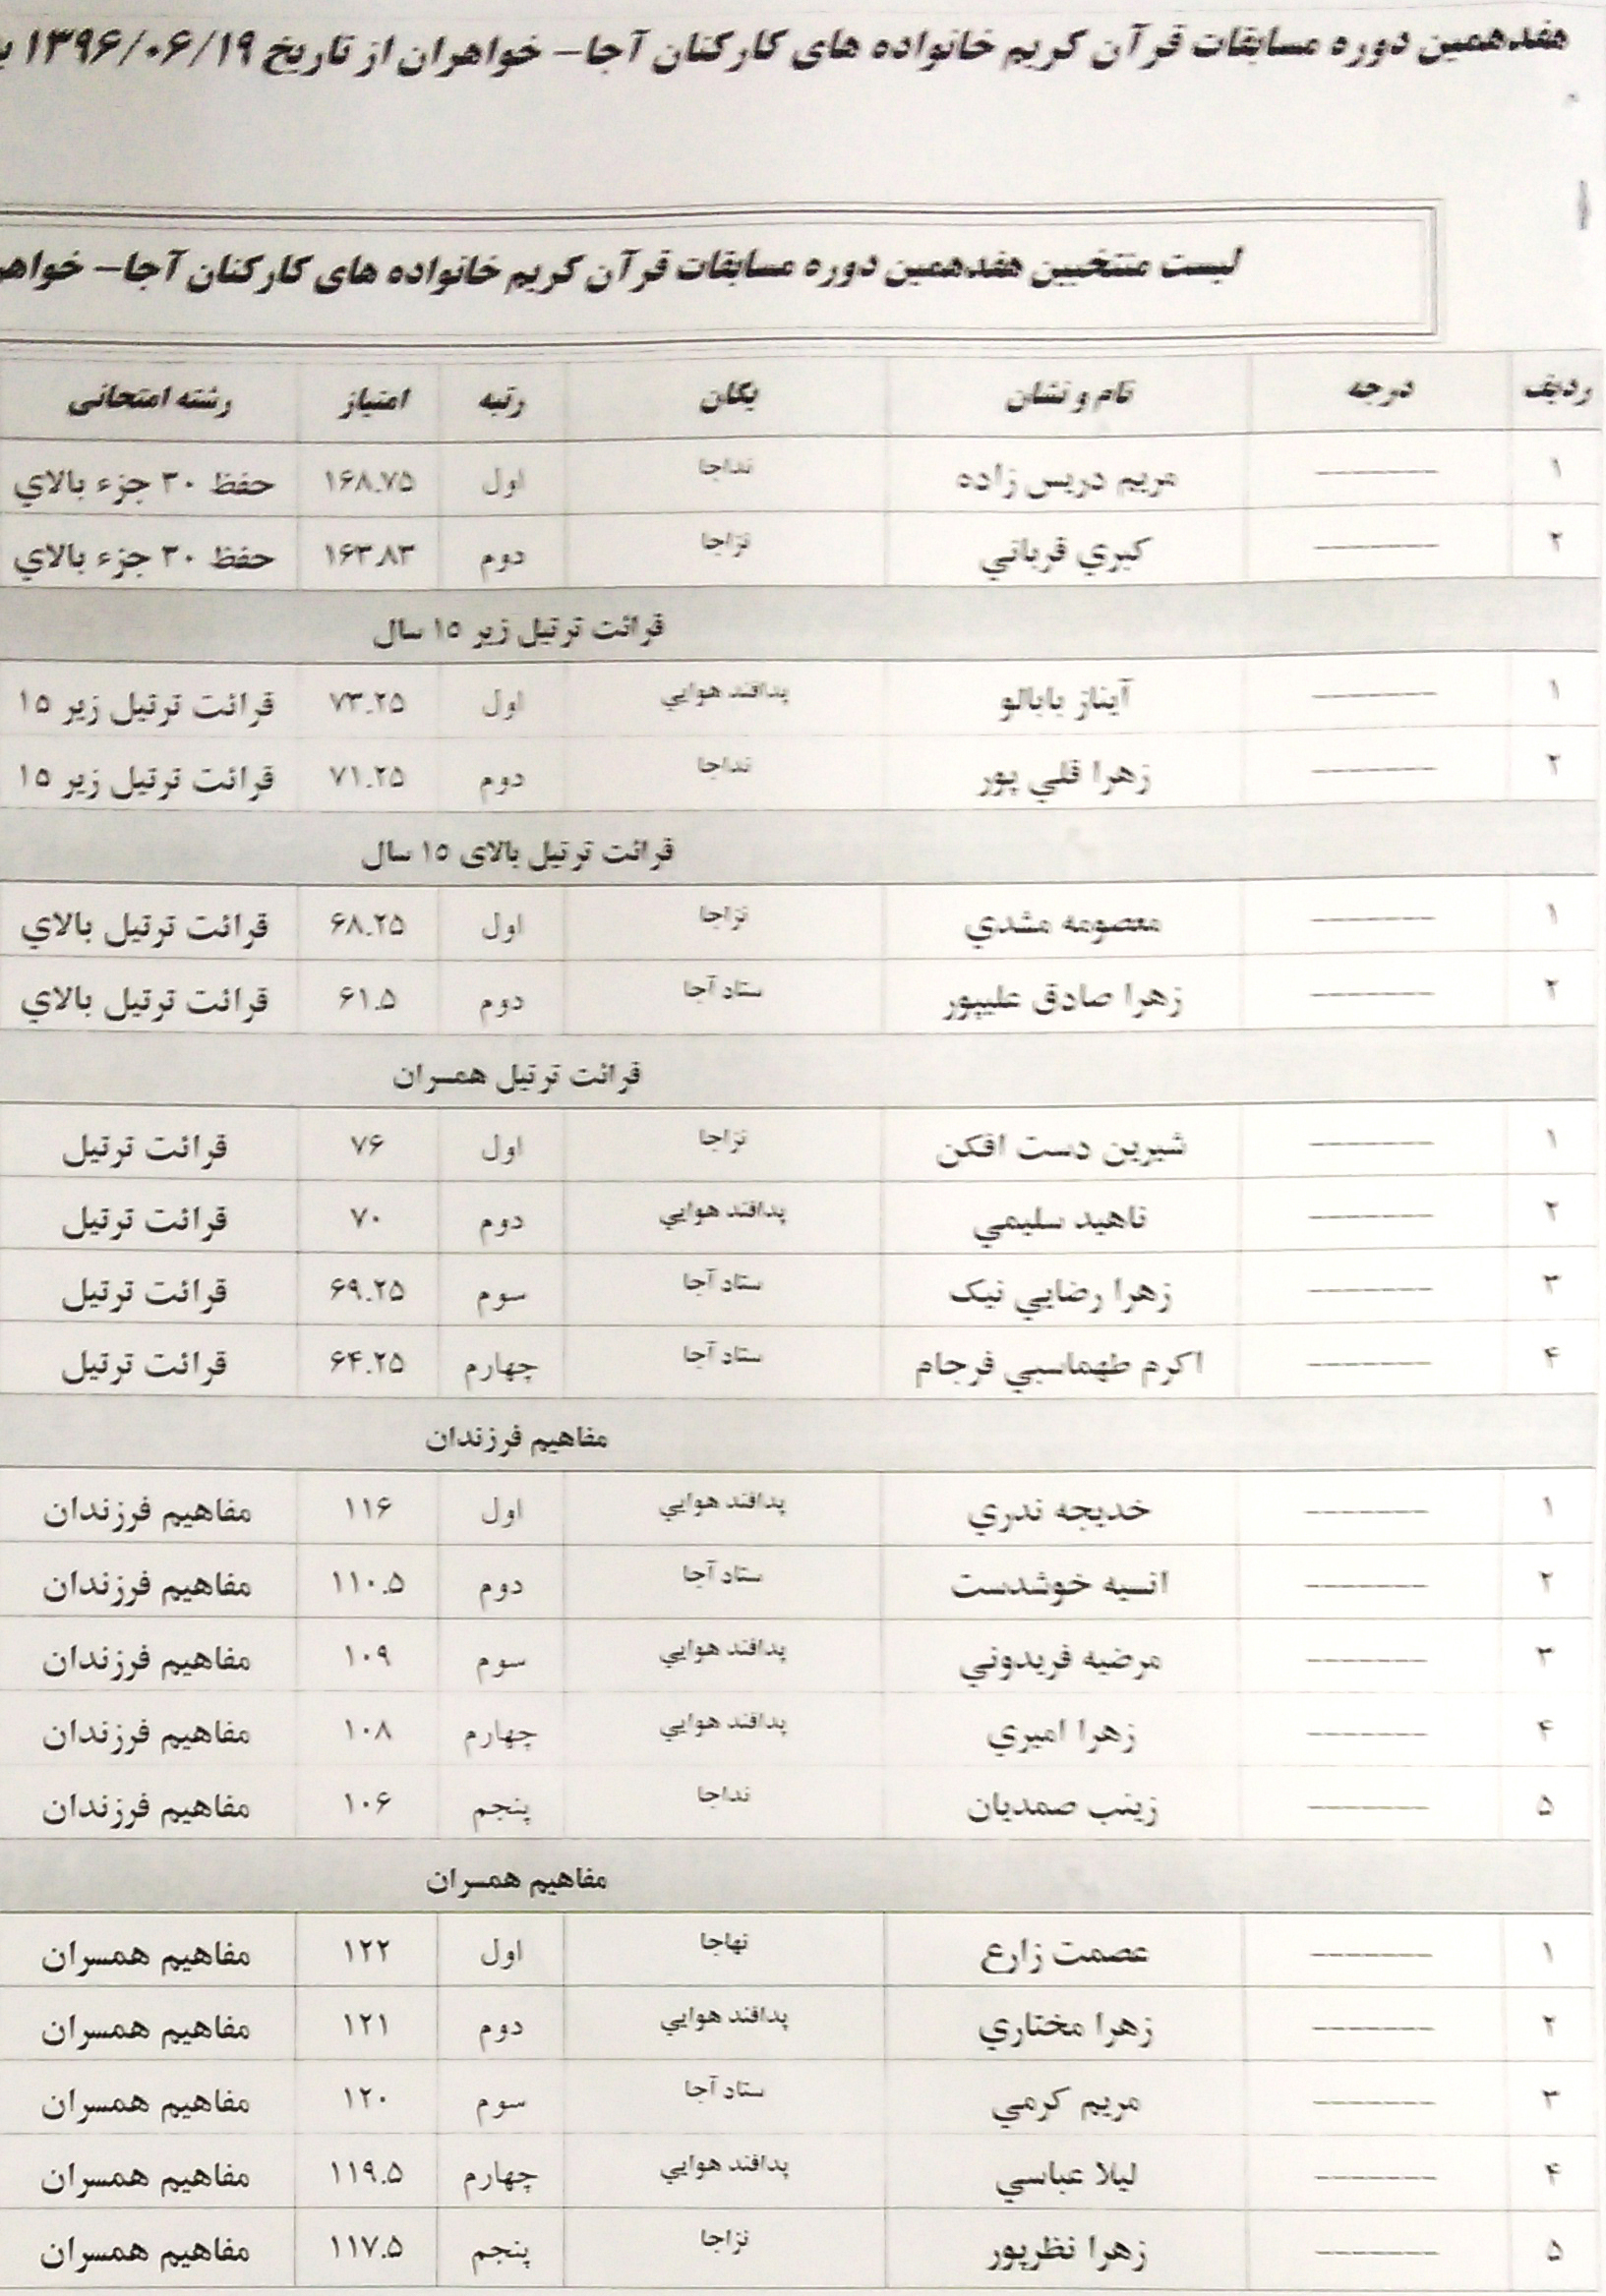 هفدهمین دوره مسابقات قرآن کریم خانواده های کارکنان آجا– خواهران از تاریخ ۱۳۹۶/۰۶/۱۹
لیست منتخبین هفدهمین دوره مسابقات قرآن کریم خانواده های کارکنان آجا– خواهر
ردیف درجه نام و نشان یگان رتبه امتیاز رشته امتحانی
۱ ———— مریم دریس زاده نداجا اول ۱۶۸.۷۵ حفظ ۳۰ جزء بالاي
۲ ———— کبري قرباني نزاجا دوم ۱۶۳.۸۳ حفظ ۳۰ جزء بالاي
قرائت ترتیل زیر ۱۵ سال
۱ ———— آیناز بابالو پدافند هوایي اول ۷۳.۲۵ قرائت ترتیل زیر ۱۵
۲ ———— زهرا قلي پور نداجا دوم ۷۱.۲۵ قرائت ترتیل زیر ۱۵
قرائت ترتیل بالای ۱۵ سال
۱ ———— معصومه مشدي نزاجا اول ۶۸.۲۵ قرائت ترتیل بالاي
۲ ———— زهرا صادق علیپور ستاد آجا دوم ۶۱.۵ قرائت ترتیل بالاي
قرائت ترتیل همسران
۱ ———— شیرین دست افکن نزاجا اول ۷۶ قرائت ترتیل
۲ ———— ناهید سلیمي پدافند هوایي دوم ۷۰ قرائت ترتیل
۳ ———— زهرا رضایي نیک ستاد آجا سوم ۶۹.۲۵ قرائت ترتیل
۴ ———— اکرم طهماسبي فرجام ستاد آجا چهارم ۶۴.۲۵ قرائت ترتیل
مفاهیم فرزندان
۱ ———— خدیجه ندري پدافند هوایي اول ۱۱۶ مفاهیم فرزندان
۲ ———— انسیه خوشدست ستاد آجا دوم ۱۱۰.۵ مفاهیم فرزندان
۳ ———— مرضیه فریدوني پدافند هوایي سوم ۱۰۹ مفاهیم فرزندان
۴ ———— زهرا امیري پدافند هوایي چهارم ۱۰۸ مفاهیم فرزندان
۵ ———— زینب صمدیان نداجا پنجم ۱۰۶ مفاهیم فرزندان
مفاهیم همسران
۱ ———— عصمت زارع نهاجا اول ۱۲۲ مفاهیم همسران
۲ ———— زهرا مختاري پدافند هوایي دوم ۱۲۱ مفاهیم همسران
۳ ———— مریم کرمي ستاد آجا سوم ۱۲۰ مفاهیم همسران
۴ ———— لیلا عباسي پدافند هوایي چهارم ۱۱۹.۵ مفاهیم همسران
۵ ———— زهرا نظرپور نزاجا پنجم ۱۱۷.۵ مفاهیم همسران